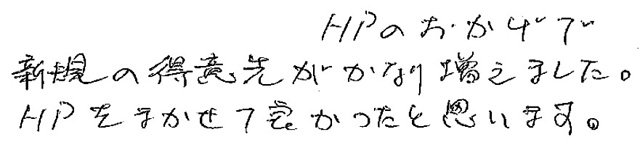 HPのおかげで
新規の得意先がかなり増えました。
HPをまかせて良かったと思います。